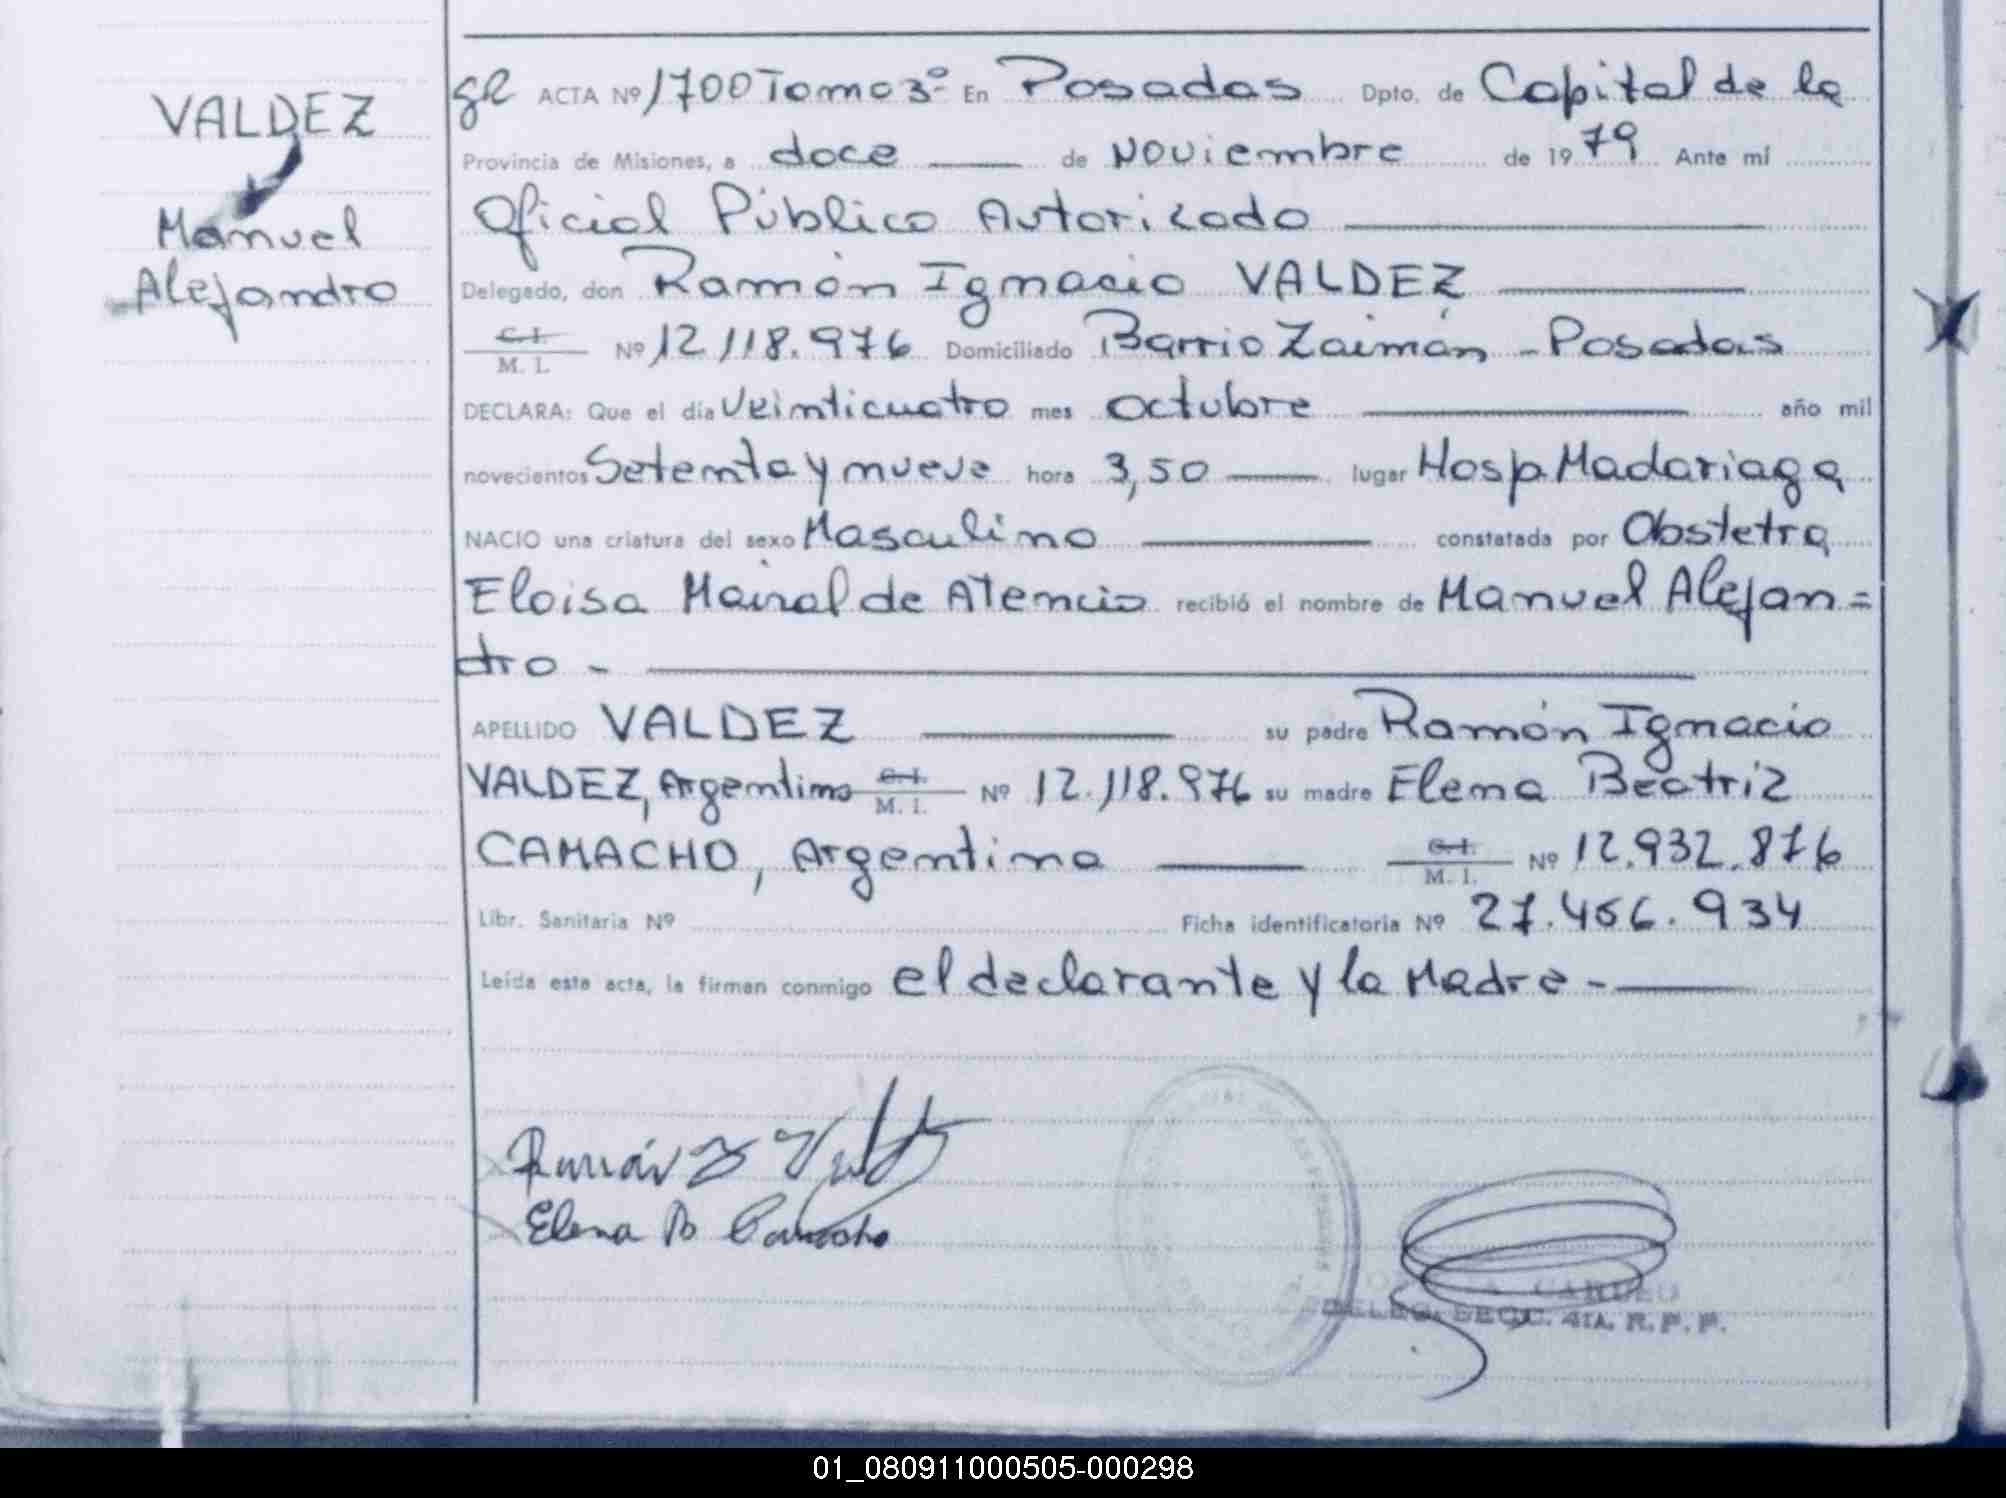 VALDEZ
Manuel
Alejandro
ACTA Nº 1700 Tomo 3º En Posadas Dpto. de Capital de la
Provincia de Misiones, a doce de Noviembre de 1979 Ante mí
Oficial Público Autorizado
Delegado, don Ramón Ignacio VALDEZ
C.I.
M. I. Nº 12.118.976 Domiciliado Barrio Zaimán - Posadas
DECLARA: Que el día Veinticuatro mes Octubre año mil
novecientos Setenta y nueve hora 3,50 lugar Hosp. Madariaga
NACIO una criatura del sexo Masculino constatada por Obstetra
Eloisa Mairal de Atencio recibió el nombre de Manuel Alejan=
dro -
APELLIDO VALDEZ su padre Ramón Ignacio
VALDEZ, Argentino C.I. M. I. Nº 12.118.976 su madre Elena Beatriz
CAMACHO, Argentina C.I. M. I. Nº 12.932.876
Libr. Sanitaria Nº Ficha identificatoria Nº 27.456.934
Leída esta acta, la firman conmigo el declarante y la Madre -
Ramón I Valdez
Elena B Camacho
DELEG. SECC. 4TA. R. P. P.
01_080911000505-000298